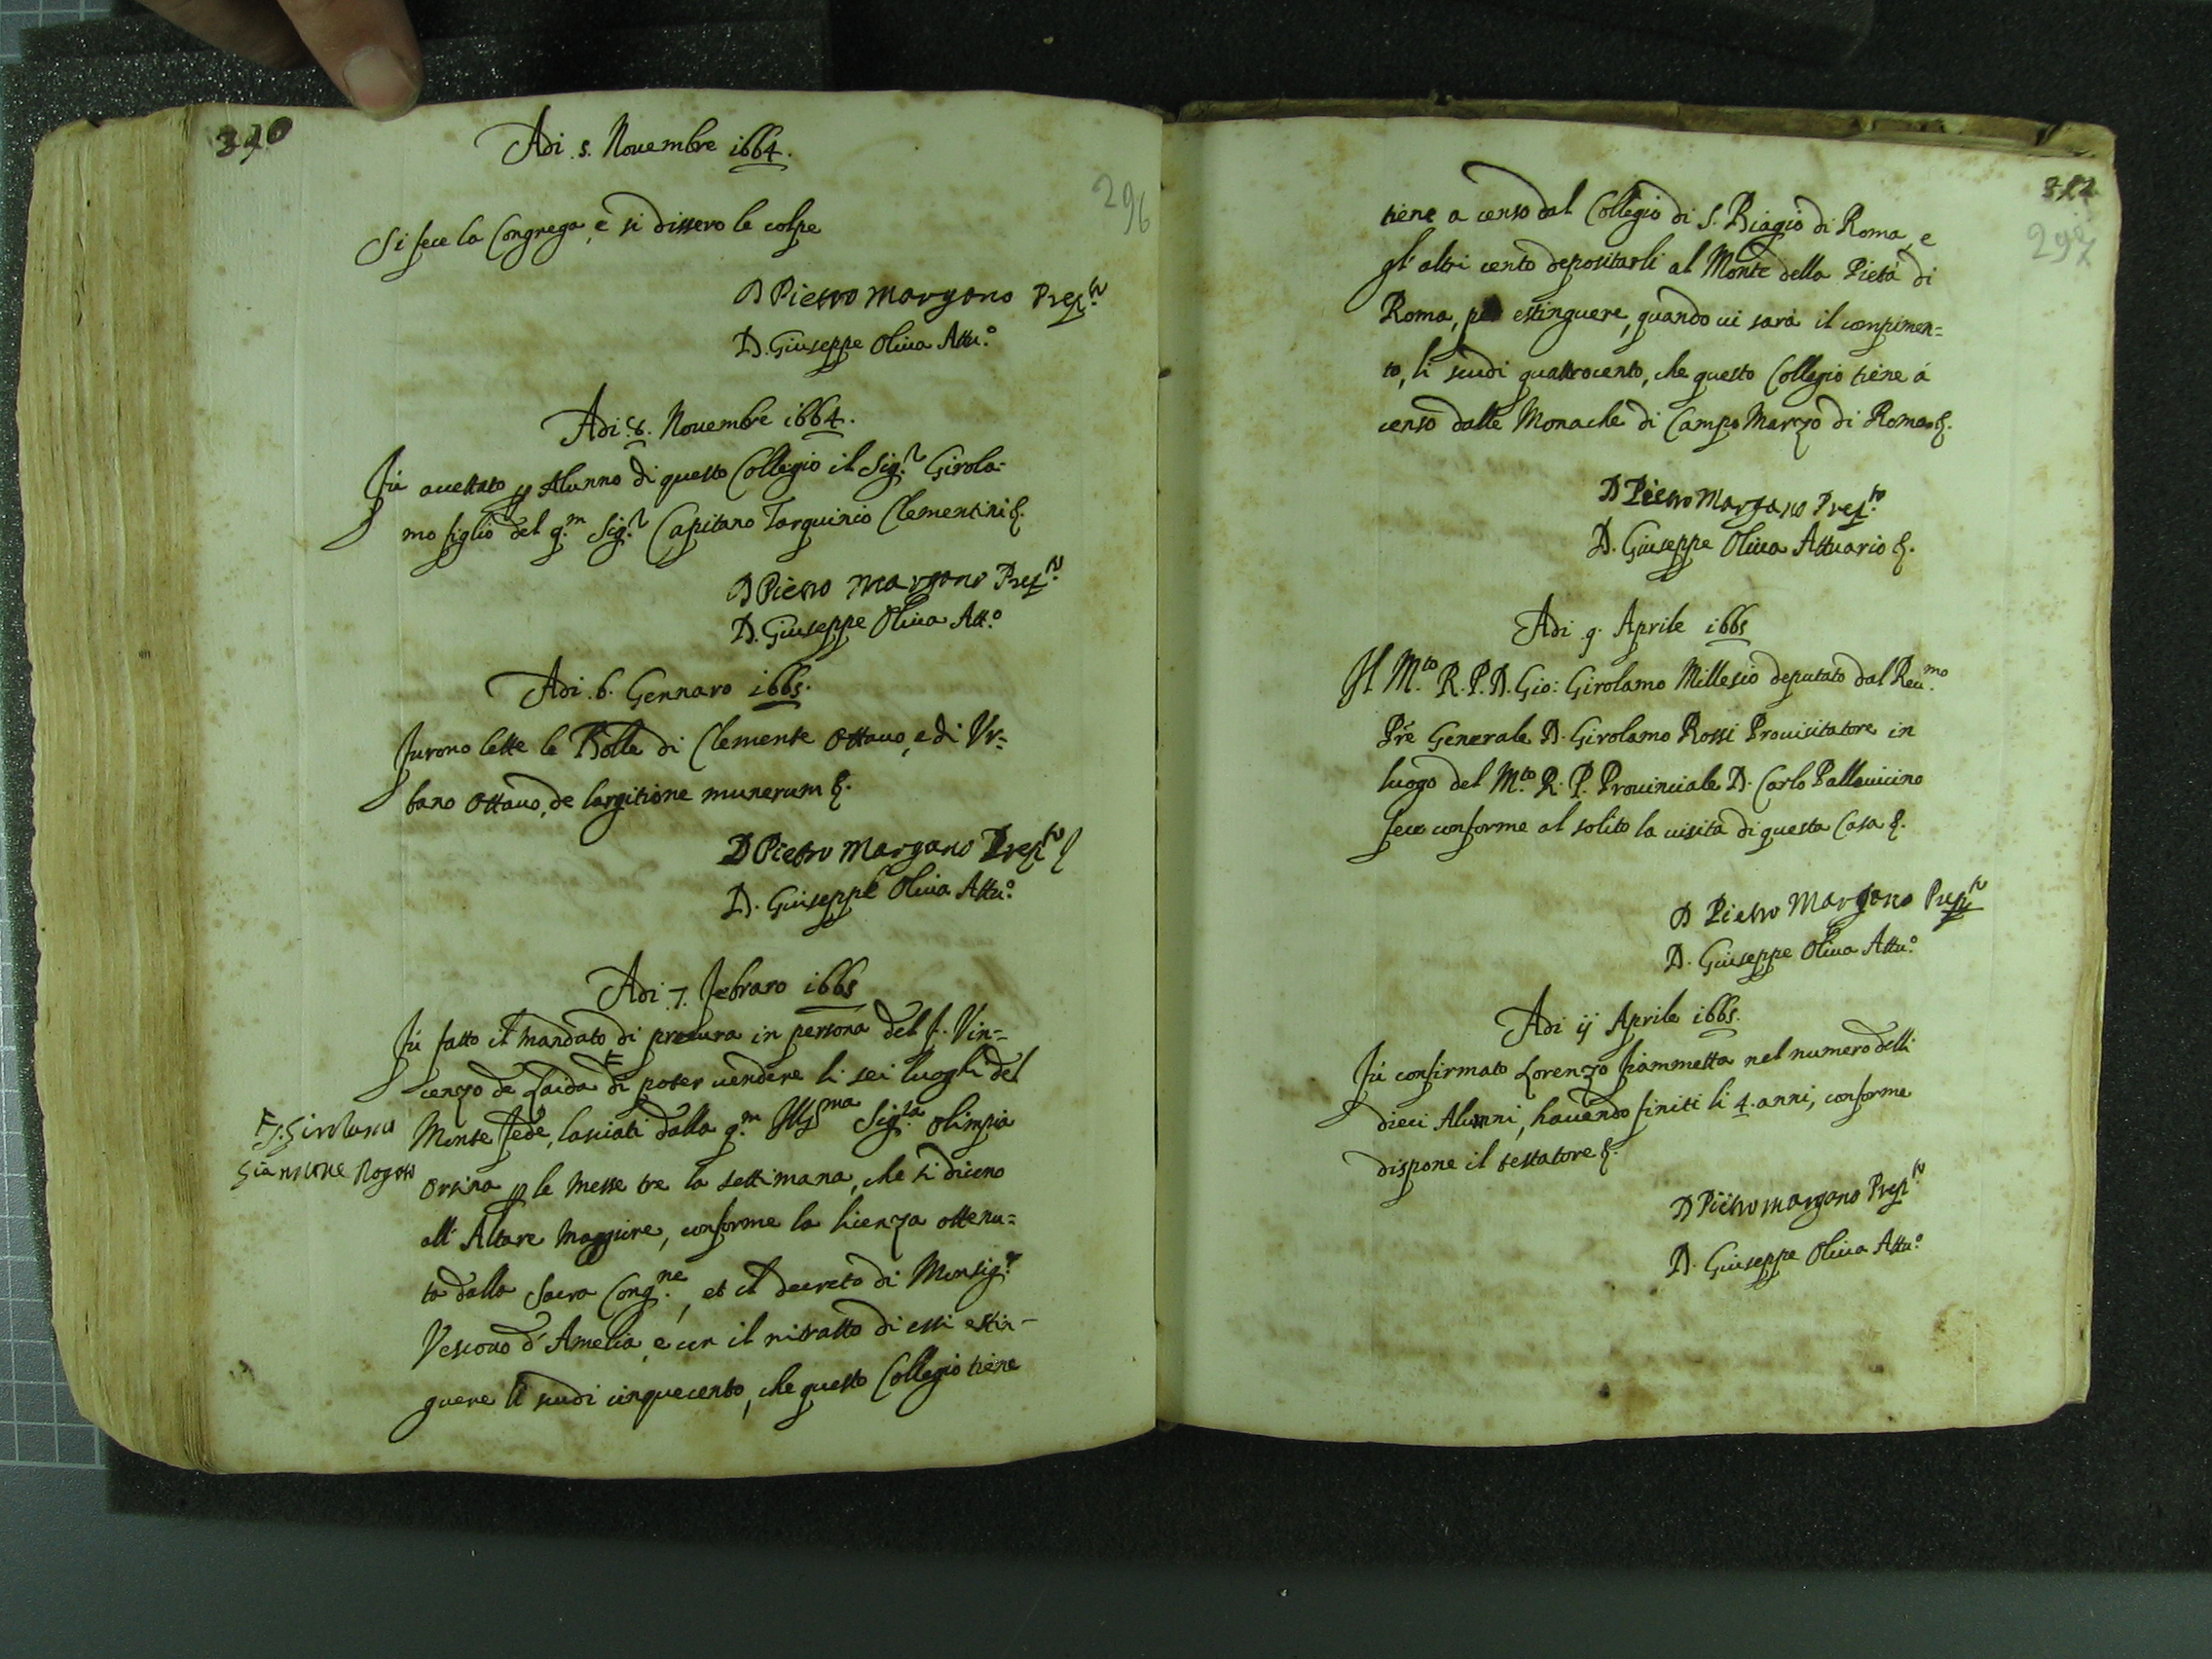 310
296
Adi .5. Nouembre 1664.
Si fece la Congrega, e si dissero le colpe
D Pietro Margano Prep.to
D. Giuseppe Oliua Attu.o
Adi .8. Nouembre 1664.
Fù accettato p Alunno di questo Collegio il Sig.r Girola-
mo figlio del q.m Sig.r Capitano Tarquinio Clementini &.
D Pietro Margano Prep.to
D. Giuseppe Oliua Att.o
Adi .6. Gennaro 1665.
Furono lette le Bolle di Clemente Ottauo, e di Vr=
bano Ottauo, de largitione munerum &.
D Pietro Margano Prep.to
D. Giuseppe Oliua Attu.o
Adi 7. Febraro 1665
Fù fatto il mandato di procura in persona del s. Vin-
cenzo de Laida di poter uendere li sei luoghi del
Monte Fede, lasciati dalla q.m Ill.ma Sig.ra Olimpia
Orsina p le Messe tre la settimana, che si dicono
all' Altare Maggiore, conforme la licenza ottenu=
ta dalla Sacra Cong.ne, et il decreto di Monsig.r
Vescouo d'Amelia, e con il ritratto di essi estin-
guere li scudi cinquecento, che questo Collegio tiene
Girolamo
Rogato
297
tiene a censo dal Collegio di S. Biagio di Roma, e
gl'altri cento depositarli al Monte della Pietà di
Roma, per estinguere, quando ui sarà il compimen=
to, li scudi quattrocento, che questo Collegio tiene à
censo dalle Monache di Campo Marzo di Roma &.
D Pietro Margano Prep.to
D. Giuseppe Oliua Attuario &.
Adi .9. Aprile 1665
Il M.to R. P. D. Gio: Girolamo Millesio deputato dal Reu.mo
Prè Generale D. Girolamo Rossi Prouisitatore in
luogo del M.to R. P. Prouinciale D. Carlo Pallauicino
fece conforme al solito la uisita di questa Casa &.
D Pietro Margano Prep.to
D. Giuseppe Oliua Attu.o
Adi ij Aprile 1665.
Fù confirmato Lorenzo fiammetta nel numero delli
dieci Alunni, hauendo finiti li 4. anni, conforme
dispone il testatore &.
D Pietro Margano Prep.to
D. Giuseppe Oliua Attu.o